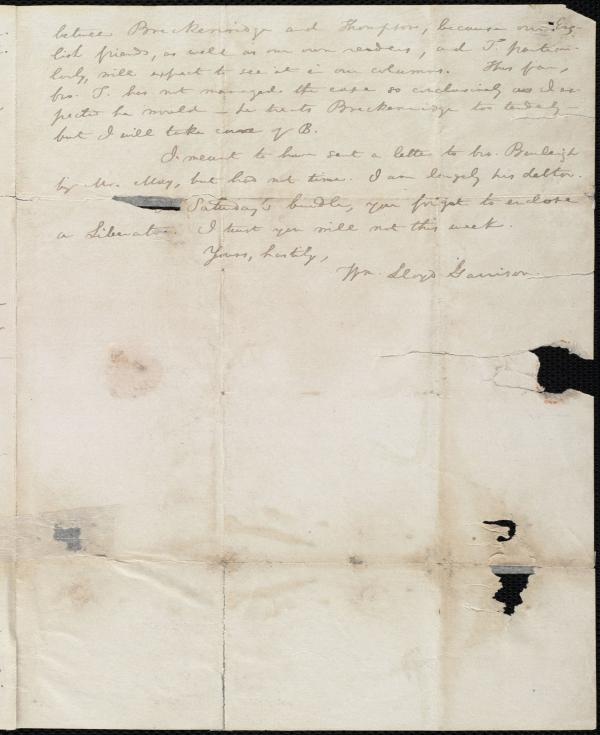 between Breckenridge and Thompson, because our Eng-
lish friends, as well as our own readers, and T. particu-
larly, will expect to see it in our columns. Thus far,
bro. T. has not managed the case so conclusively as I ex-
pected he would — he treats Breckenridge too tenderly —
but I will take care of B.
I meant to have sent a letter to bro. Burleigh
by Mr. May, but had not time. I am largely his debtor.
Saturday's bundle, you forgot to enclose
a Liberator. I trust you will not this week.
Yours, hastily,
Wm. Lloyd Garrison.